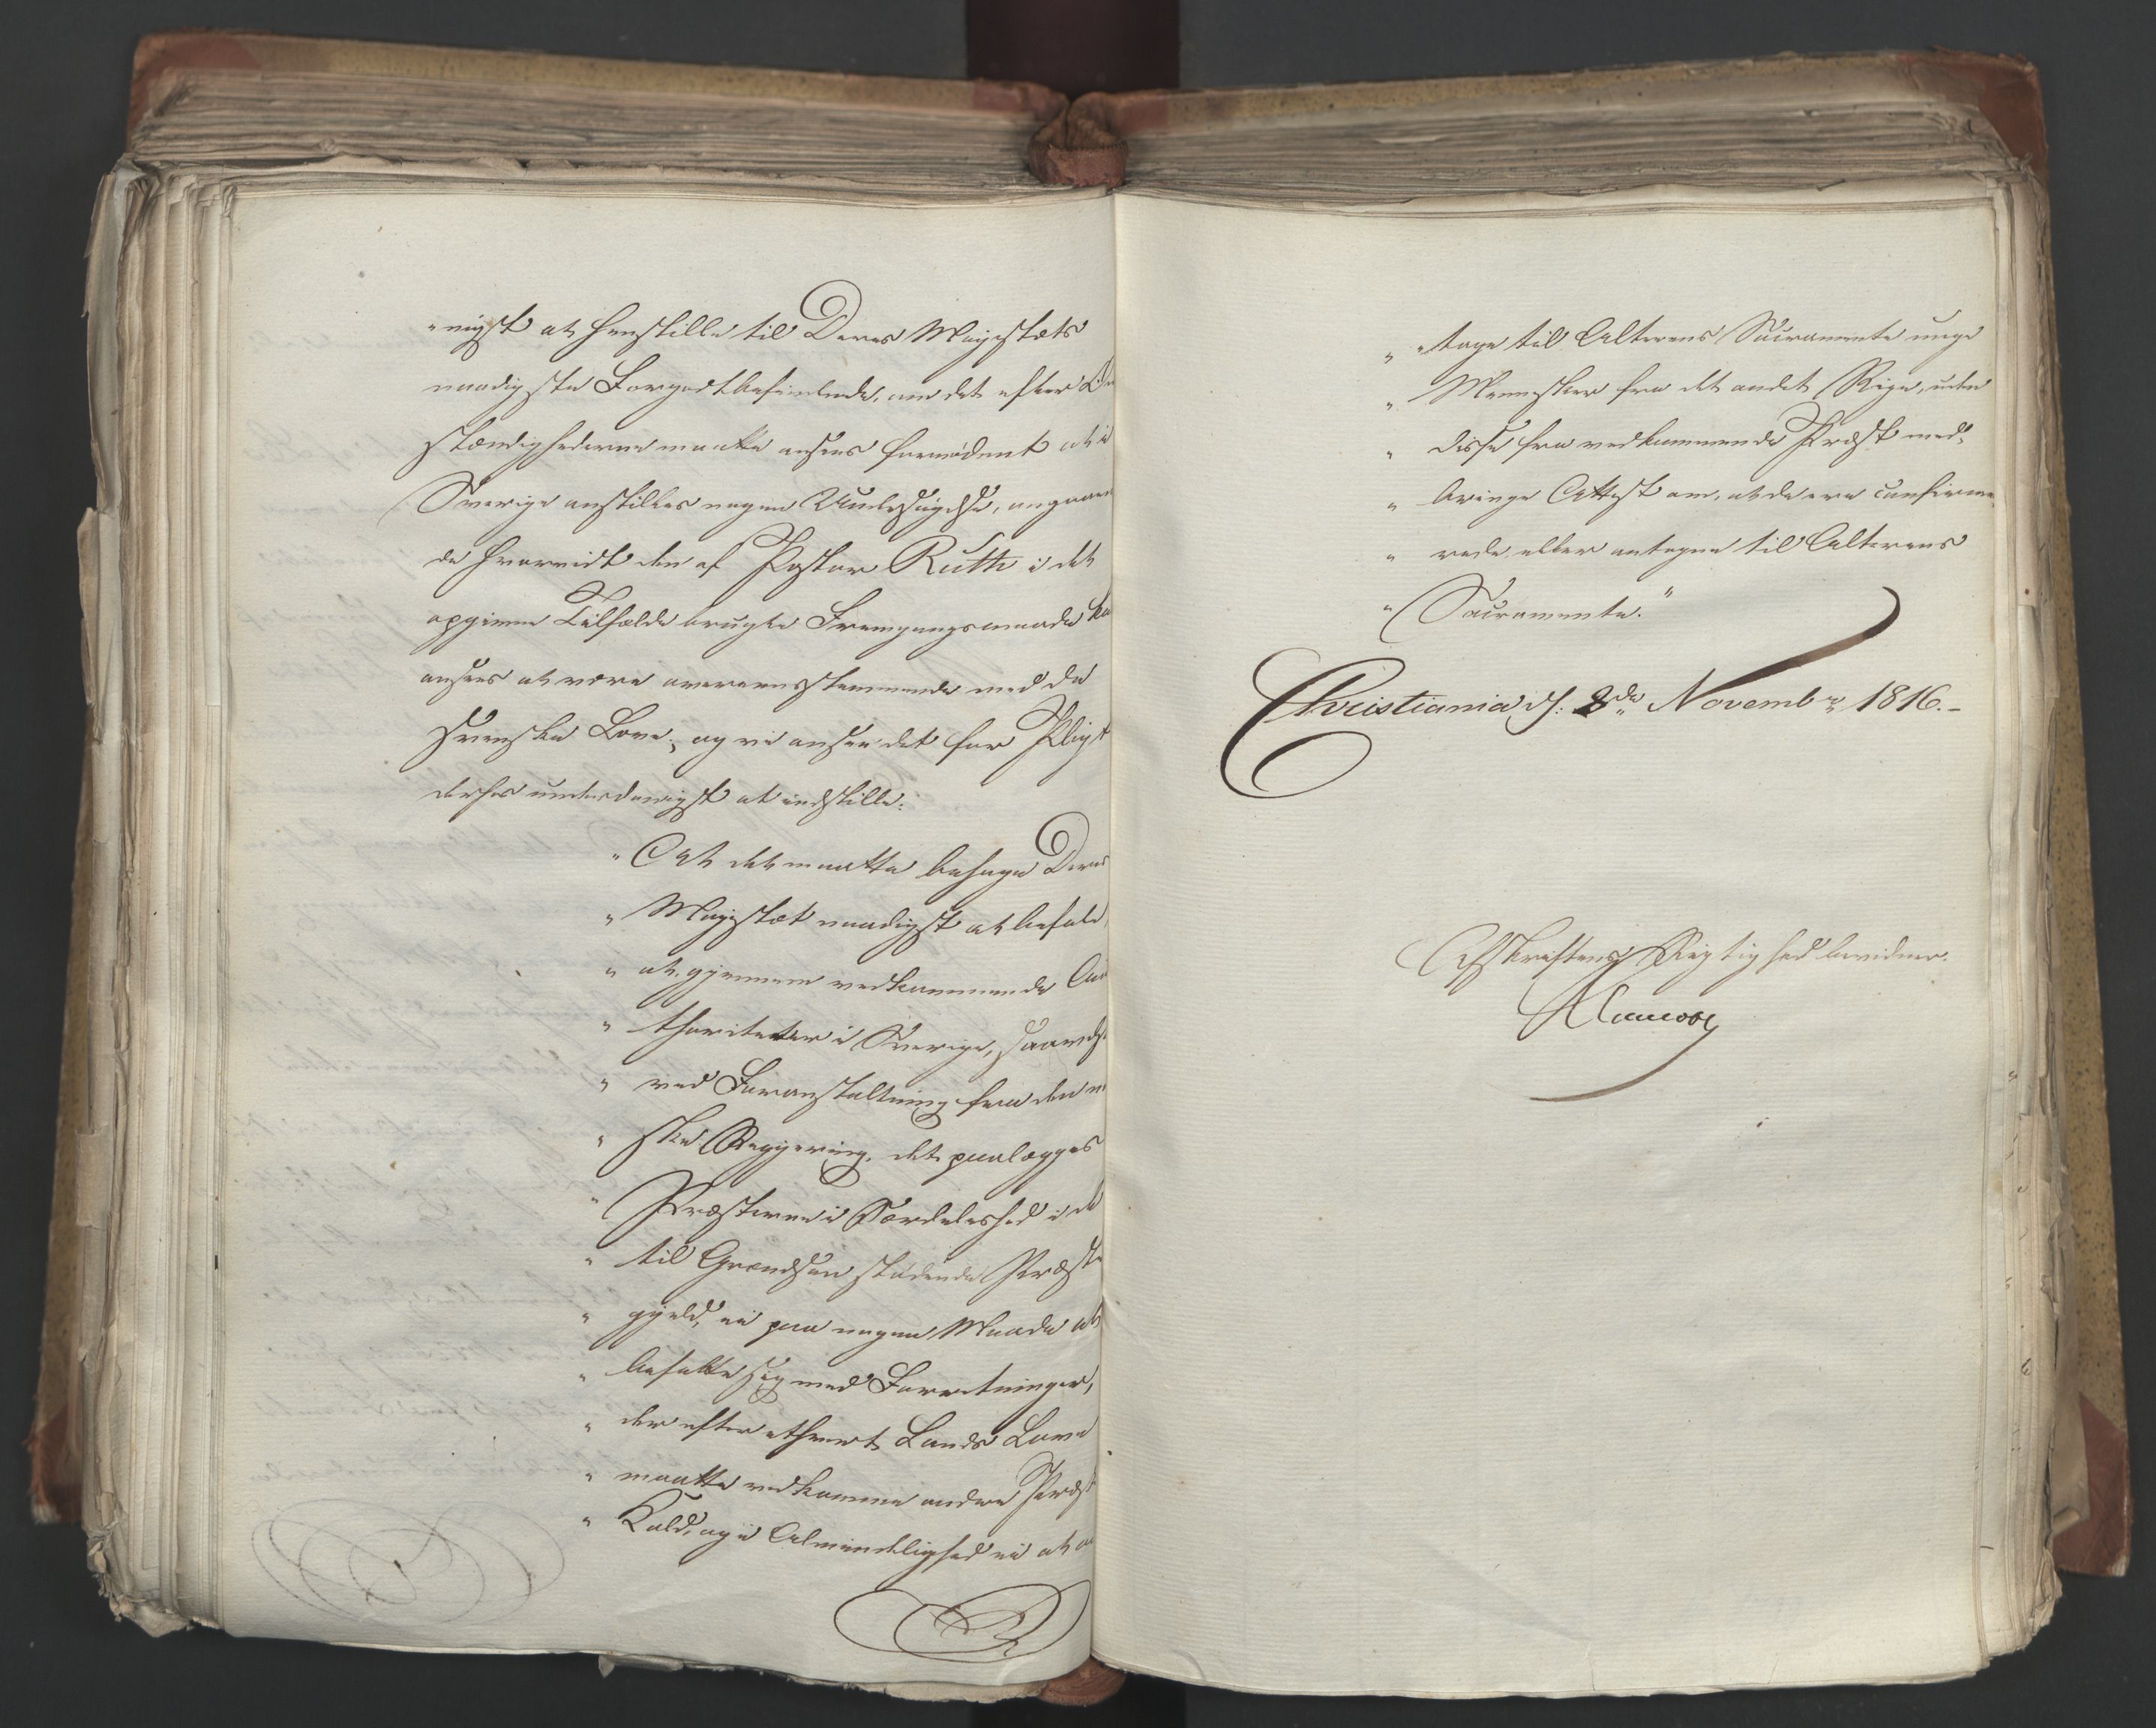 "nigst at henstille til Deres Majestæts
naadigste Forgodtbefindende, om det efter
stændighederne maatte ansees fornødent at i
Sverige anstilles nogen Undersøgelse, angaaen
de hvorvidt den af Pastor Ruth i det
opgivne Tilfælde brugte Fremgangsmaade
ansees at være overeensstemmende med de
svenske Love; og vi ansee det for Pligt
derhos underdanigst at indstille:
"At det maatte behage Deres
" Majestæt naadigst at befale,
" at, gjennem vedkommende Au
" thoriteter i Sverige, saavelso
" ved Foranstaltning fra den no
" ske Regjering, det paalægges
" Præsterne i Særdeleshed i de
" til Grændsen stødende Præste
" gjeld, ei paa nogen Maade at
" befatte sig med Forretninger,
" der efter ethvert Lands Love
" maatte vedkomme andre Præste
" Kald, og i Almindelighed ei at an
" "tage til Alterens Sacramente unge
" Mennesker fra det andet Rige, uden
" disse fra vedkommende Præst med,
" bringe Attest om, at de ere confirme
" rede eller antagne til Alterens
" Sacramente."
Christiania d: 8de Novembr 1816.-
Afskriftens Rigtighed bevidner.